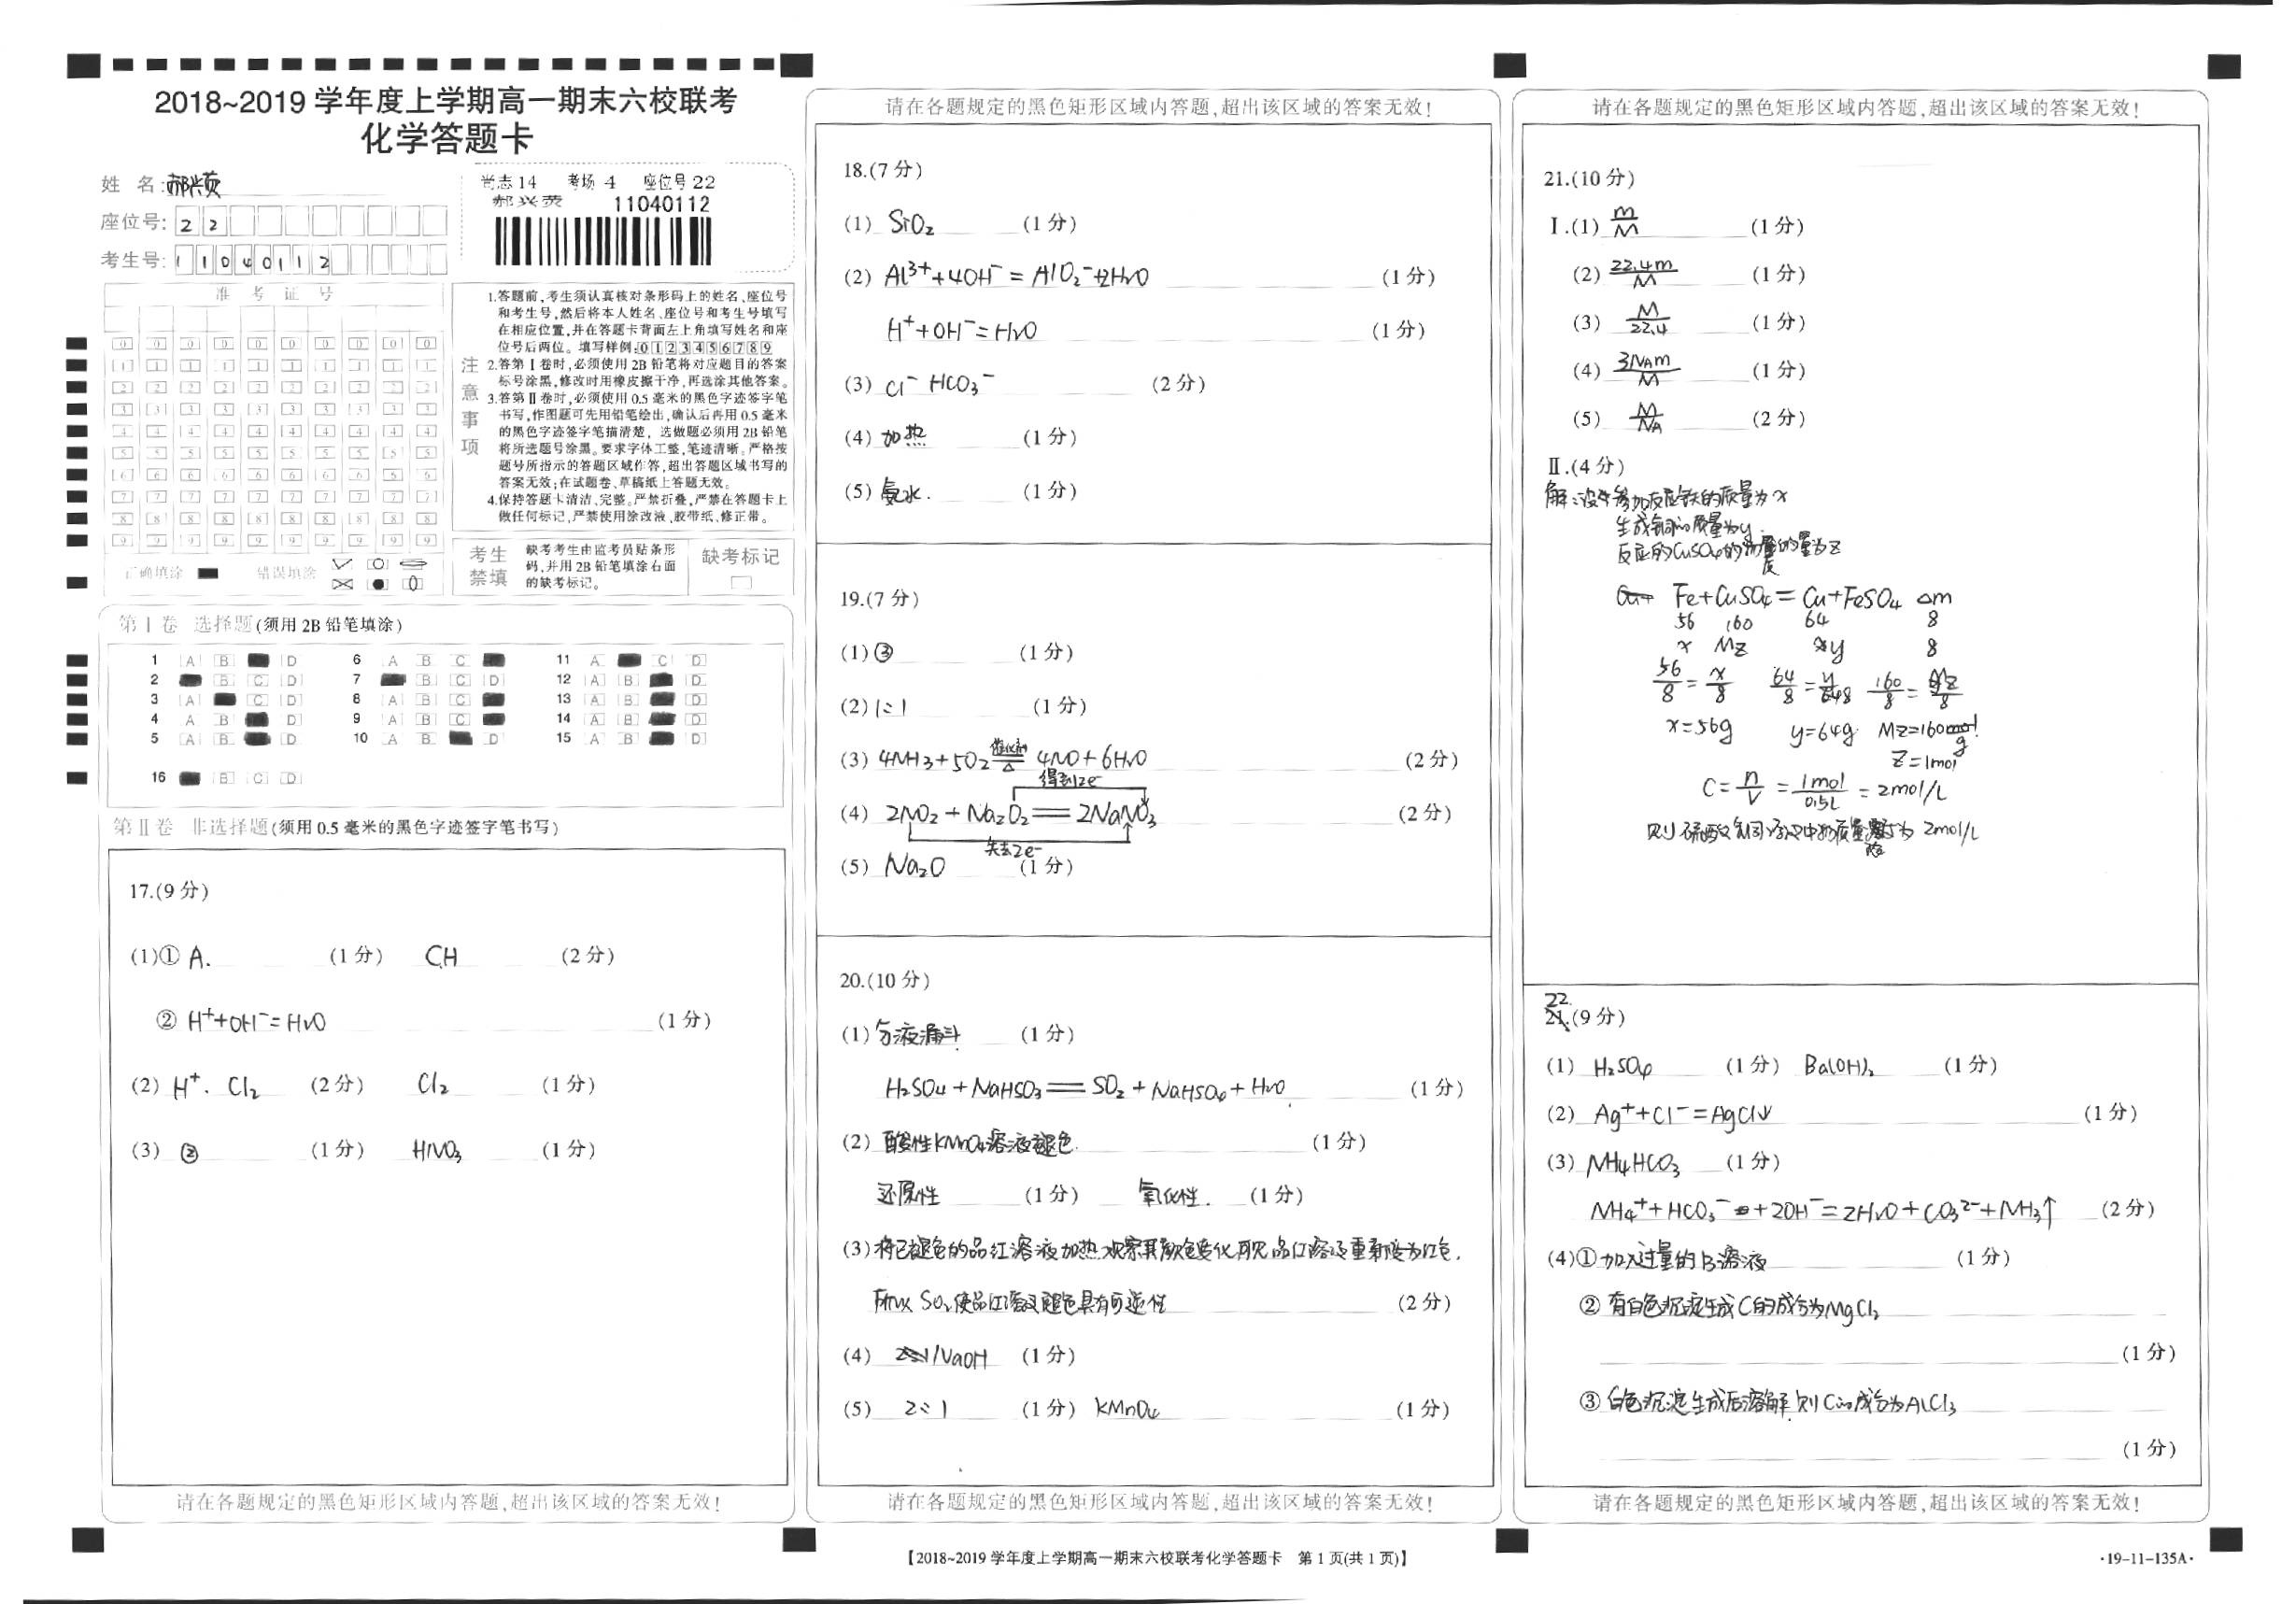 2018~2019 学年度上学期高一期末六校联考
化学答题卡
姓 名:郝兴荧
座位号: 2 2
考生号: 1 1 0 4 0 1 1 2
尚志14 考场 4 座位号 22
郝兴荧 11040112
准 考 证 号
0 0 0 0 0 0 0 0 0 0
1 1 1 1 1 1 1 1 1 1
2 2 2 2 2 2 2 2 2 2
3 3 3 3 3 3 3 3 3 3
4 4 4 4 4 4 4 4 4 4
5 5 5 5 5 5 5 5 5 5
6 6 6 6 6 6 6 6 6 6
7 7 7 7 7 7 7 7 7 7
8 8 8 8 8 8 8 8 8 8
9 9 9 9 9 9 9 9 9 9
正确填涂 错误填涂
注意事项
1.答题前,考生须认真核对条形码上的姓名、座位号
和考生号,然后将本人姓名、座位号和考生号填写
在相应位置,并在答题卡背面左上角填写姓名和座
位号后两位。填写样例:0123456789
2.答第Ⅰ卷时,必须使用2B铅笔将对应题目的答案
标号涂黑,修改时用橡皮擦干净,再选涂其他答案。
3.答第Ⅱ卷时,必须使用0.5毫米的黑色字迹签字笔
书写,作图题可先用铅笔绘出,确认后再用0.5毫米
的黑色字迹签字笔描清楚，选做题必须用2B铅笔
将所选题号涂黑。要求字体工整,笔迹清晰。严格按
题号所指示的答题区域作答,超出答题区域书写的
答案无效;在试题卷、草稿纸上答题无效。
4.保持答题卡清洁、完整。严禁折叠,严禁在答题卡上
做任何标记,严禁使用涂改液、胶带纸、修正带。
考生禁填
缺考考生由监考员贴条形
码,并用2B铅笔填涂右面
的缺考标记。
缺考标记
第Ⅰ卷 选择题(须用2B铅笔填涂)
1 A B D 6 A B C 11 A C D
2 B C D 7 B C D 12 A B D
3 A C D 8 A B C 13 A B D
4 A B D 9 A B C 14 A B D
5 A B D 10 A B D 15 A B D
16 B C D
第Ⅱ卷 非选择题(须用0.5毫米的黑色字迹签字笔书写)
17.(9分)
(1)① A. (1分) CH (2分)
② H⁺+OH⁻=H₂O (1分)
(2) H⁺. Cl₂ (2分) Cl₂ (1分)
(3) ② (1分) HNO₃ (1分)
请在各题规定的黑色矩形区域内答题,超出该区域的答案无效!
请在各题规定的黑色矩形区域内答题,超出该区域的答案无效!
18.(7分)
(1) SiO₂ (1分)
(2) Al³⁺+4OH⁻=AlO₂⁻+2H₂O (1分)
H⁺+OH⁻=H₂O (1分)
(3) Cl⁻ HCO₃⁻ (2分)
(4) 加热 (1分)
(5) 氨水. (1分)
19.(7分)
(1) ③ (1分)
(2) 1:1 (1分)
(3) 4NH₃+5O₂ 催化剂 △ 4NO+6H₂O (2分)
得到2e⁻
(4) 2NO₂+Na₂O₂══2NaNO₃ (2分)
失去2e⁻
(5) Na₂O (1分)
20.(10分)
(1) 分液漏斗. (1分)
H₂SO₄+NaHSO₃══SO₂+NaHSO₄+H₂O. (1分)
(2) 酸性KMnO₄溶液褪色. (1分)
还原性 (1分) 氧化性. (1分)
(3) 将已褪色的品红溶液加热.观察其颜色变化可见品红溶液重新变为红色.
所以SO₂使品红溶液褪色具有可逆性 (2分)
(4) NaOH (1分)
(5) 2:1 (1分) KMnO₄ (1分)
请在各题规定的黑色矩形区域内答题,超出该区域的答案无效!
【2018~2019学年度上学期高一期末六校联考化学答题卡 第1页(共1页)】
请在各题规定的黑色矩形区域内答题,超出该区域的答案无效!
21.(10分)
Ⅰ.(1) m/M (1分)
(2) 22.4m/M (1分)
(3) M/22.4 (1分)
(4) 3NAm/M (1分)
(5) M/NA (2分)
Ⅱ.(4分)
解:设参加反应铁的质量为x
生成铜的质量为y.
反应的CuSO₄的物质的量为z
Fe+CuSO₄=Cu+FeSO₄ △m
56 160 64 8
x Mz y 8
56/8=x/8 64/8=y/8 160/8=Mz/8
x=56g y=64g. Mz=160g
z=1mol
C=n/V=1mol/0.5L=2mol/L
则硫酸铜溶液中物质量浓度为2mol/L
22.(9分)
(1) H₂SO₄ (1分) Ba(OH)₂ (1分)
(2) Ag⁺+Cl⁻=AgCl↓ (1分)
(3) NH₄HCO₃ (1分)
NH₄⁺+HCO₃⁻+2OH⁻=2H₂O+CO₃²⁻+NH₃↑ (2分)
(4)① 加入过量的B溶液 (1分)
② 有白色沉淀生成C的成分为MgCl₂
(1分)
③ 白色沉淀生成后溶解.则C的成分为AlCl₃
(1分)
请在各题规定的黑色矩形区域内答题,超出该区域的答案无效!
·19-11-135A·